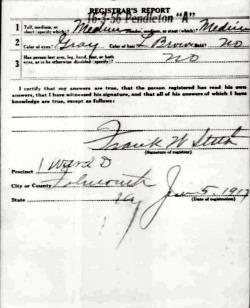 REGISTRAR'S REPORT
16-3-56 Pendleton "A"
1 Tall, medium, or short (specify which)? Medium Slender, medium, or stout (which)? Medium
2 Color of eyes? Gray Color of hair? Brown Bald? No
3 Has person lost arm, leg, hand, foot, or both eyes, or is he otherwise disabled (specify)? No
I certify that my answers are true, that the person registered has read his own
answers, that I have witnessed his signature, and that all of his answers of which I have
knowledge are true, except as follows:
Frank W
(Signature of registrar)
Precinct 1 Ward D
City or County Falmouth
State Ky
June 5, 1917
(Date of registration)